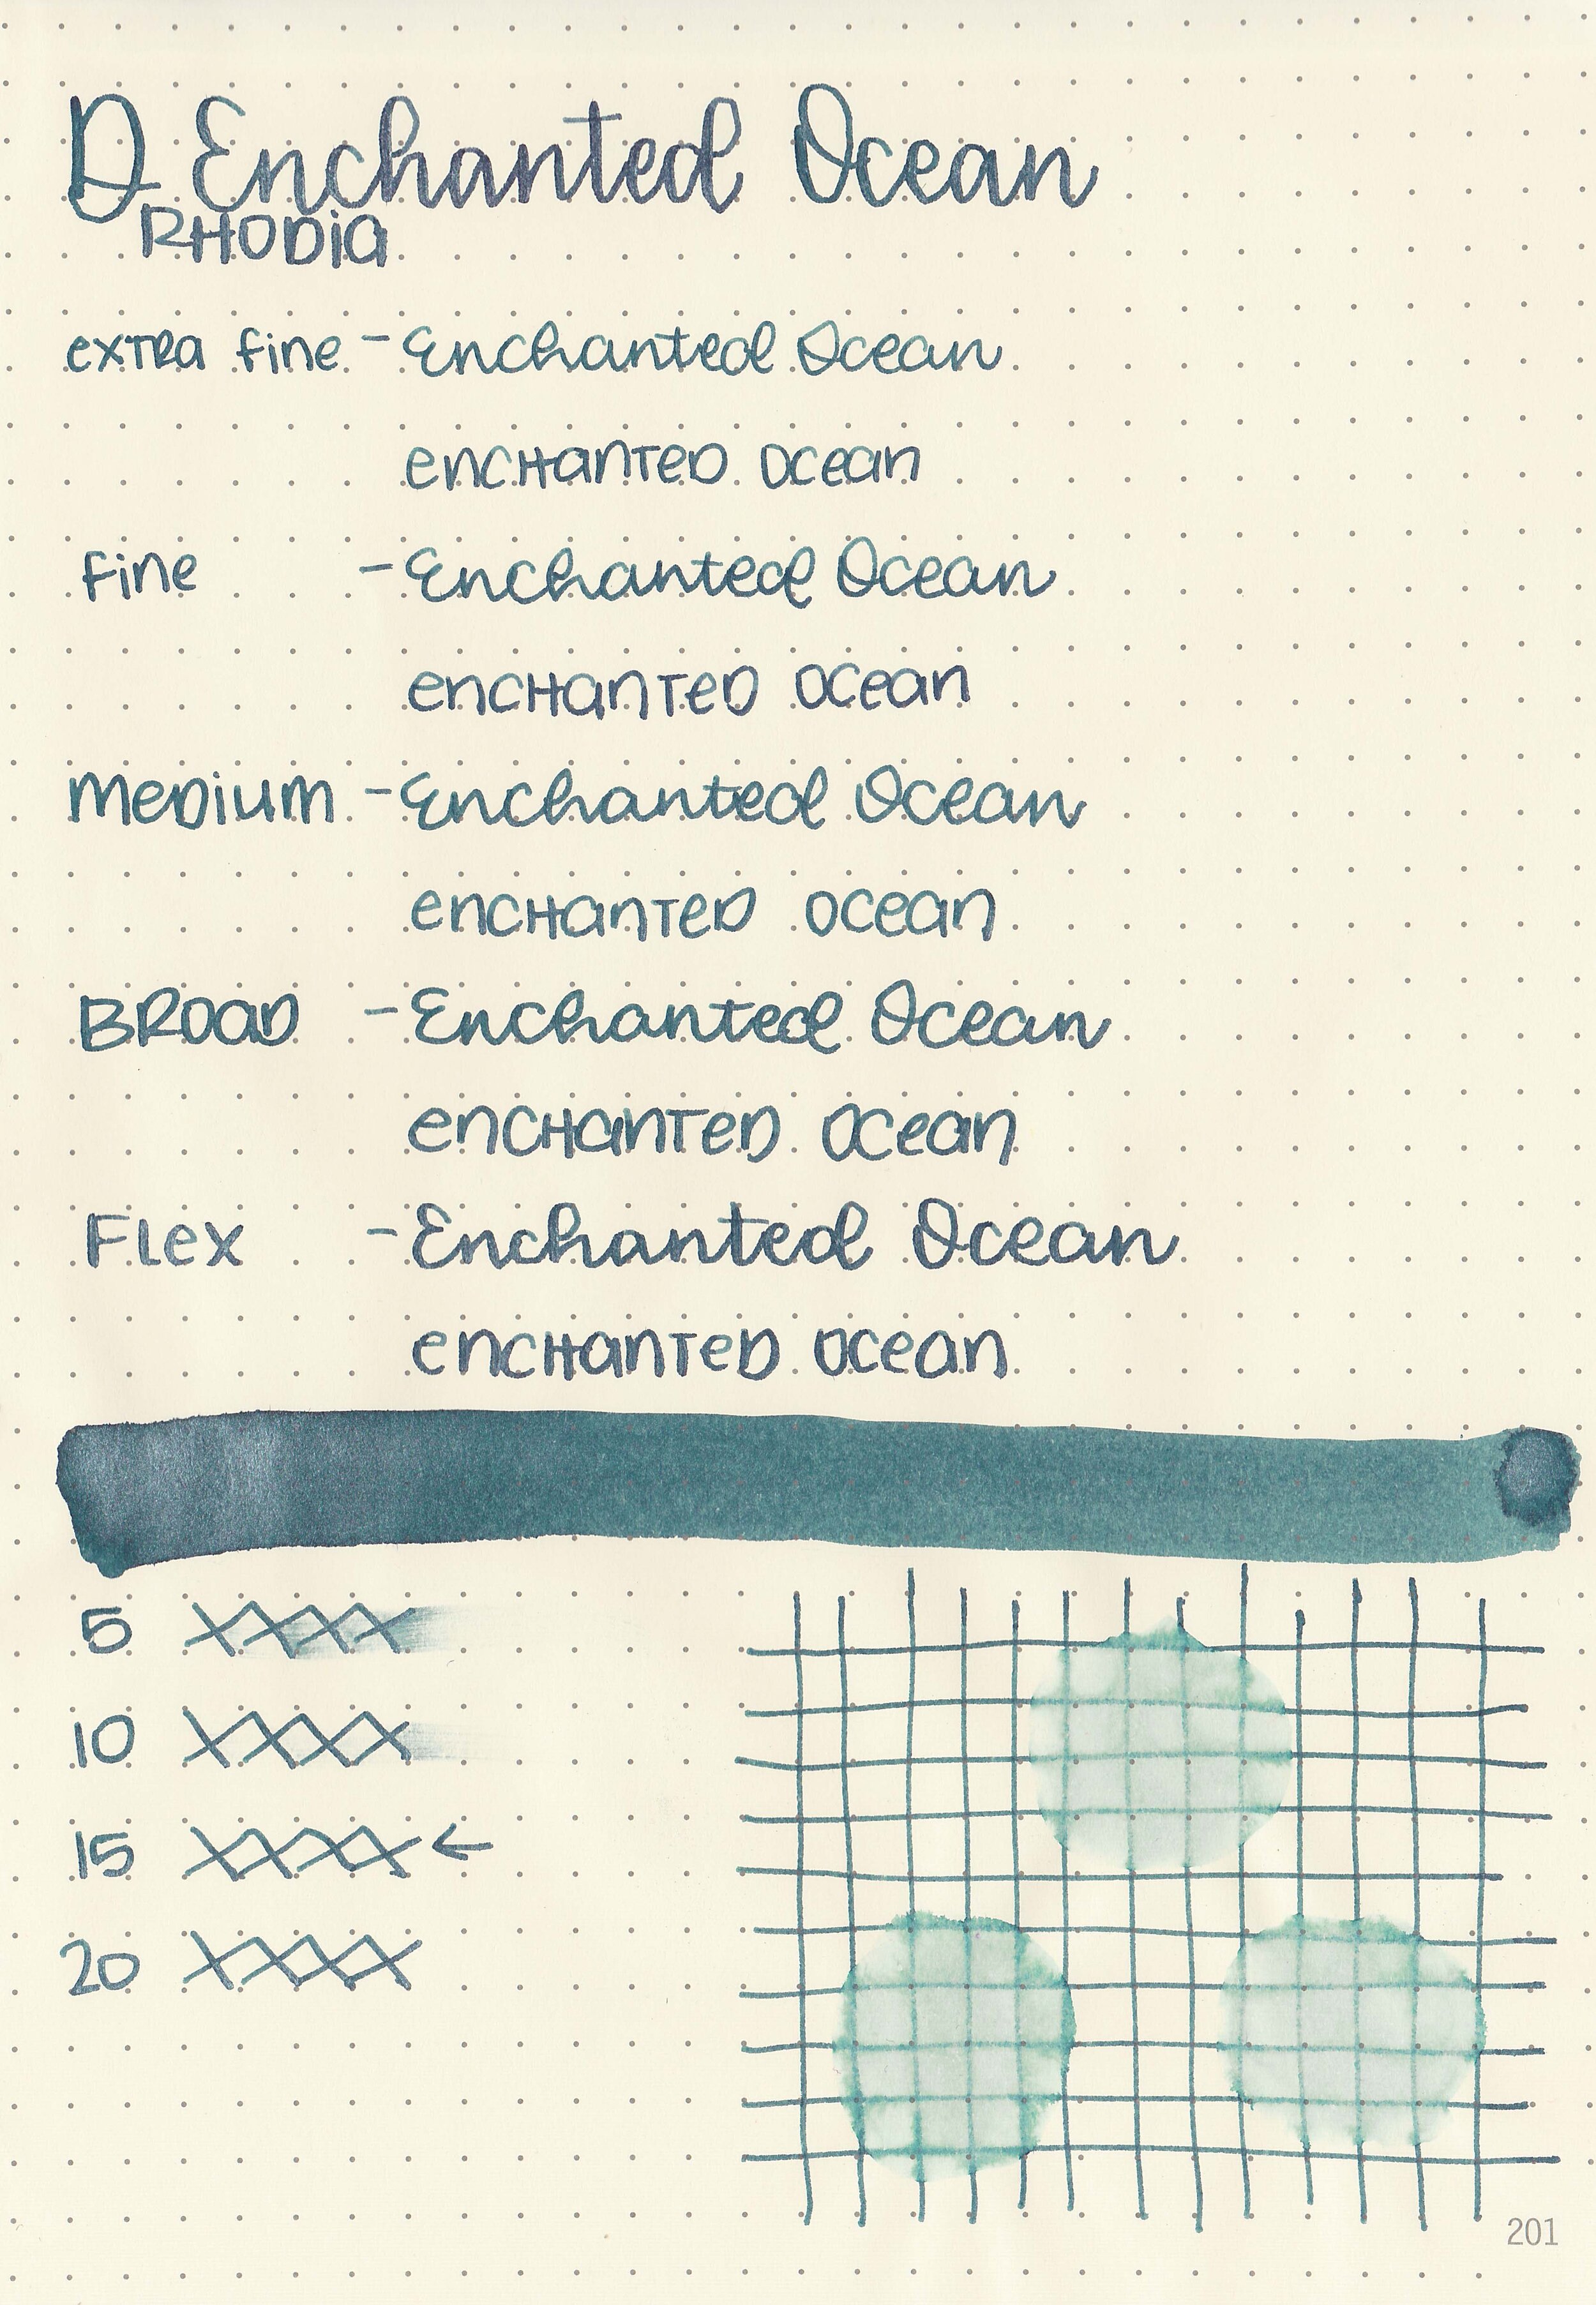 D Enchanted Ocean
RHODIA
extra fine - Enchanted Ocean
enchanted ocean
fine - Enchanted Ocean
enchanted ocean
medium - Enchanted Ocean
enchanted ocean
BROAD - Enchanted Ocean
enchanted ocean
Flex - Enchanted Ocean
enchanted ocean
5 XXXX
10 XXXX
15 XXXX ←
20 XXXX
201